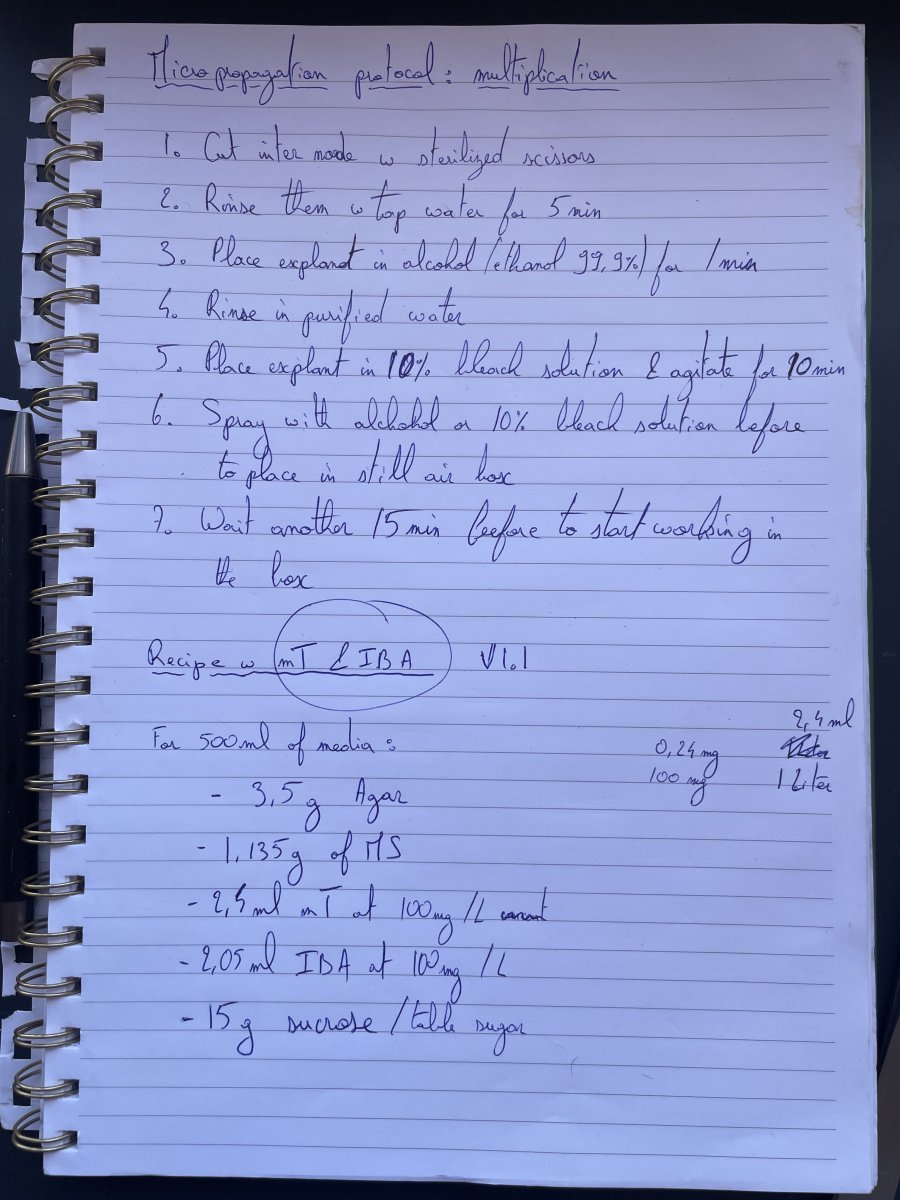 Micropropagation protocol : multiplication
1. Cut inter node w sterilized scissors
2. Rinse them w tap water for 5 min
3. Place explant in alcohol (ethanol 99,9%) for 1 min
4. Rinse in purified water
5. Place explant in 10% bleach solution & agitate for 10 min
6. Spray with alchohol or 10% bleach solution before
to place in still air box
7. Wait another 15 min beefore to start working in
the box
Recipe w mT & IBA V1.1
2,4 ml
For 500 ml of media :
0,24 mg
100 mg 1 Liter
- 3,5 g Agar
- 1,135 g of MS
- 2,4 ml mT at 100 mg / L
- 2,05 ml IBA at 100 mg / L
- 15 g sucrose / table sugar